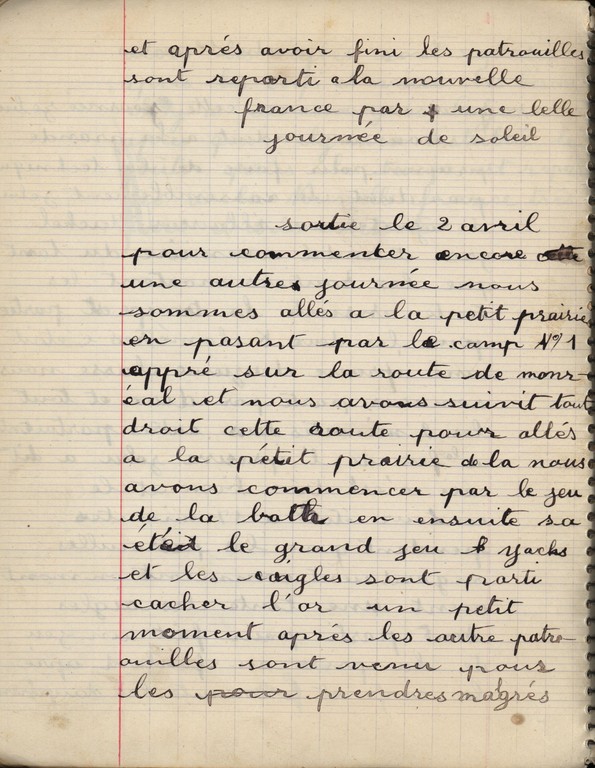 et aprés avoir fini les patrouilles
sont reparti a la nouvelle
france par une belle
journée de soleil
sortie le 2 avril
pour commenter encore
une autre journée nous
sommes allés a la petit prairie
en pasant par le camp No 1
appré sur la route de monr-
éal et nous avons suivit tout
droit cette route pour allés
a la pétit prairie de la nous
avons commencer par le jeu
de la en ensuite sa
était le grand jeu yacks
et les aigles sont parti
cacher l'or un petit
moment aprés les autre patro-
ouilles sont venu pour
les pour prendres magrés